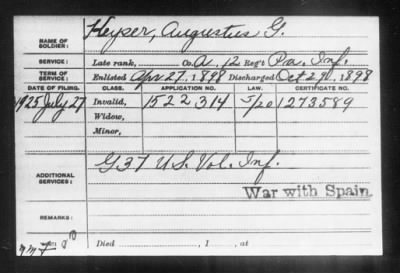 NAME OF SOLDIER: Keyser, Augustus G.
SERVICE: Late rank, Co. A, 12 Reg't Pa. Inf.
TERM OF SERVICE: Enlisted Apr 27, 1898 Discharged Oct 29, 1898
DATE OF FILING. CLASS. APPLICATION NO. LAW. CERTIFICATE NO.
1925 July 27 Invalid, 1522314 1273589
Widow,
Minor,
ADDITIONAL SERVICES: G 37 U.S. Vol. Inf.
War with Spain
REMARKS:
Died , 1 , at